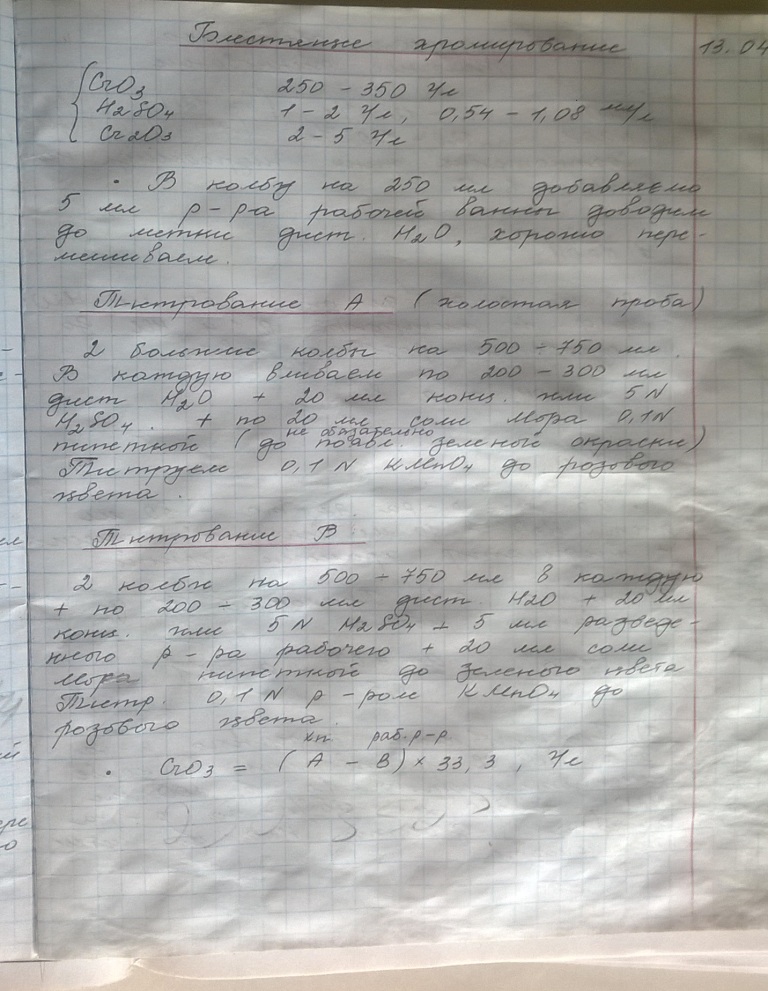 Блестящие хромирование 13.04
CrO3 250 - 350 г/л
H2SO4 1 - 2 г/л, 0,54 - 1,08 мл/л
Cr2O3 2 - 5 г/л
• В колбу на 250 мл добавляемо
5 мл р-р-а рабочей ванны доводим
до метки дист. H2O, хорошо пере-
мешиваем.
Титрование А (холостая проба)
2 большие колбы на 500 - 750 мл.
В каждую вливаем по 200 - 300 мл
дист H2O + 20 мл конц. или 5 N
H2SO4. + по 20 мл соли Мора 0,1N
не обязательно
пипеткой (до появл. зеленой окраски)
Титруем 0,1 N KMnO4 до розового
цвета.
Титрование В
2 колбы на 500 - 750 мл в каждую
+ по 200 - 300 мл дист. H2O + 20 мл
конц. или 5 N H2SO4 + 5 мл разведе-
нного р-ра рабочего + 20 мл соли
Мора пипеткой до зеленого цвета
Титр. 0,1 N р-ром KMnO4 до
розового цвета.
хп раб. р-р
• CrO3 = (А - В) × 33,3, г/л